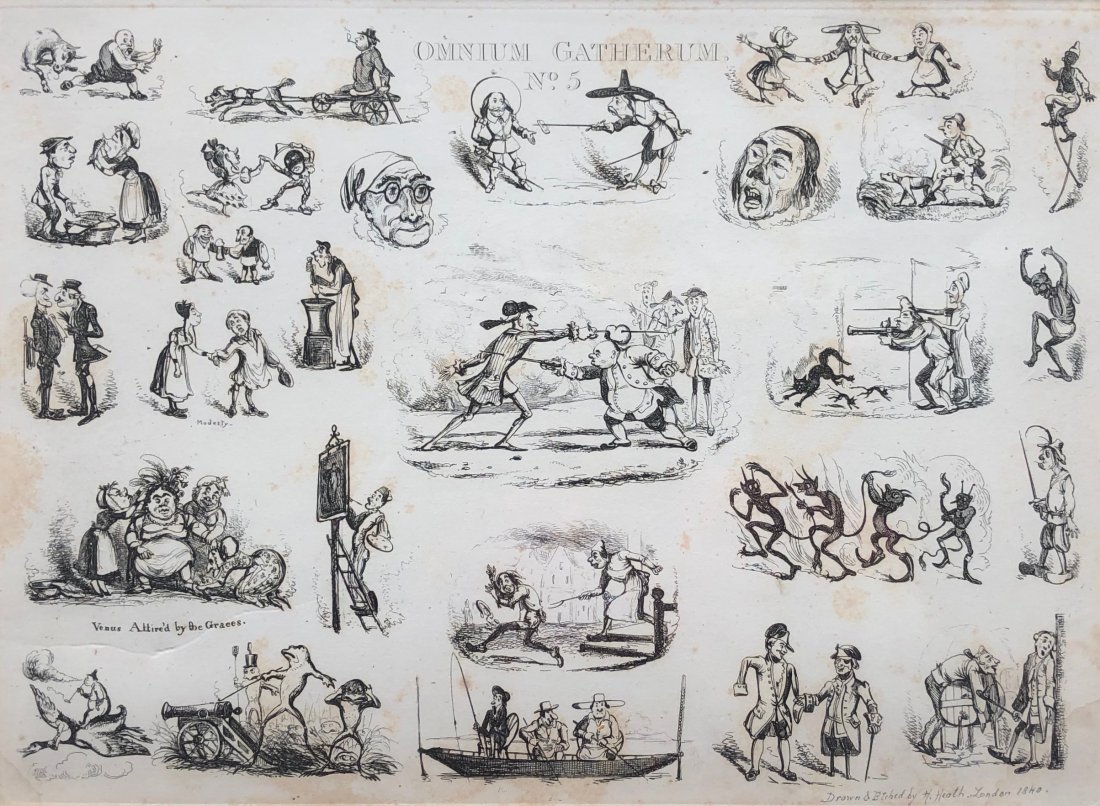 OMNIUM GATHERUM.
No. 5
Modesty.
Venus Attire'd by the Graces.
Drawn & Etched by H. Heath. London 1840.